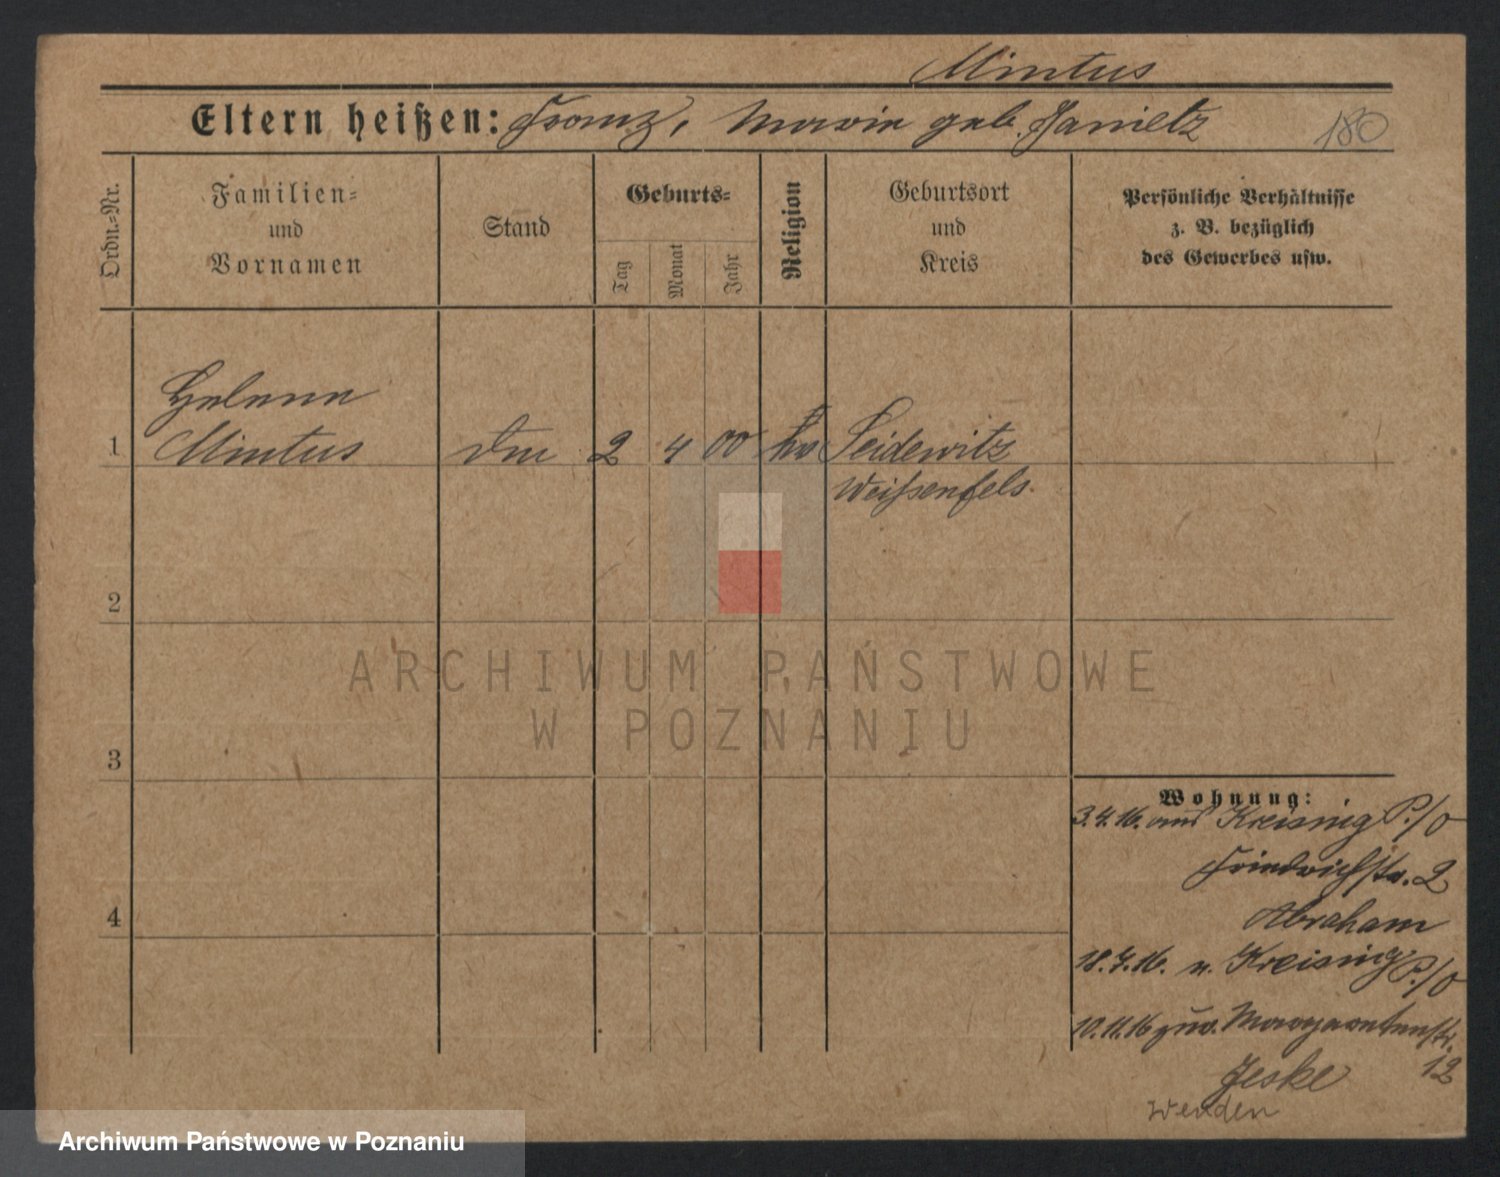 Mintus
Eltern heißen: Franz, Marie geb. Janietz 180
Ordn.=Nr.
Familien= und Vornamen
Stand
Geburts=
Tag
Monat
Jahr
Religion
Geburtsort und Kreis
Persönliche Verhältnisse
z. B. bezüglich
des Gewerbes usw.
Helene
1 Mintus 2 4 00 Seidewitz
Weißenfels.
2
3
4
Wohnung:
3.4.16. aus Kreising P./O
Friedrichstr. 2
Abraham
18.7.16. n. Kreising P./O
10.11.16 zur. Margaretenstr.
12
Jeske
Wenden
ARCHIWUM PAŃSTWOWE
W POZNANIU
Archiwum Państwowe w Poznaniu